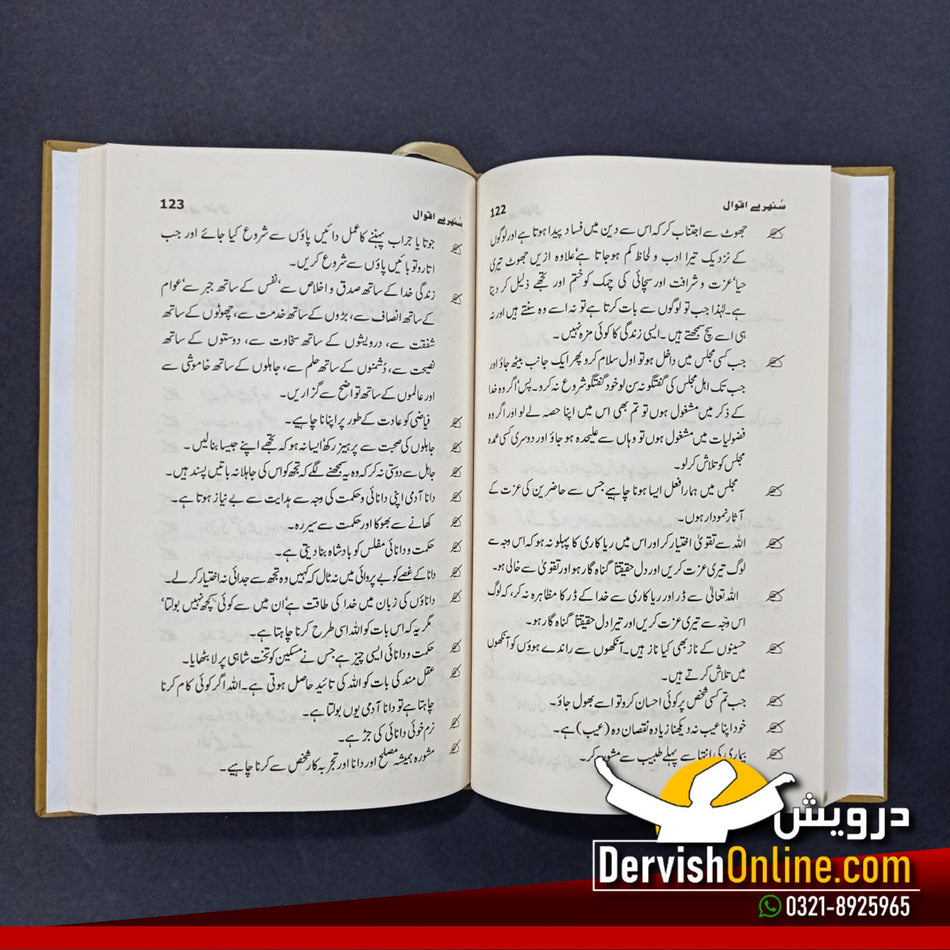 سنہرے اقوال
122
جھوٹ سے اجتناب کر کہ اس سے دین میں فساد پیدا ہوتا ہے اور لوگوں
کے نزدیک تیرا ادب و لحاظ کم ہو جاتا ہے، علاوہ ازیں جھوٹ تیری
حیا، عزت و شرافت اور سچائی کی چمک کو ختم اور تجھے ذلیل کر دیتا
ہے۔ لہٰذا جب تو لوگوں سے بات کرتا ہے تو نہ اسے وہ سنتے ہیں اور نہ
ہی اسے سچ سمجھتے ہیں۔ ایسی زندگی کا کوئی مزہ نہیں۔
جب کسی مجلس میں داخل ہو تو اول سلام کرو پھر ایک جانب بیٹھ جاؤ اور
جب تک اہل مجلس کی گفتگو نہ سن لو خود گفتگو شروع نہ کرو۔ پس اگر وہ خدا
کے ذکر میں مشغول ہوں تو تم بھی اس میں اپنا حصہ لے لو اور اگر وہ
فضولیات میں مشغول ہوں تو وہاں سے علیحدہ ہو جاؤ اور دوسری کسی عمدہ
مجلس کو تلاش کر لو۔
مجلس میں ہمارا فعل ایسا ہونا چاہیے جس سے حاضرین کی عزت کے
آثار نمودار ہوں۔
اللہ سے تقویٰ اختیار کر اور اس میں ریا کاری کا پہلو نہ ہو کہ اس وجہ سے
لوگ تیری عزت کریں اور دل حقیقتاً گناہ گار ہو اور تقویٰ سے خالی ہو۔
اللہ تعالیٰ سے ڈر اور ریا کاری سے خدا کے ڈر کا مظاہرہ نہ کر، کہ لوگ
اس وجہ سے تیری عزت کریں اور تیرا دل حقیقتاً گناہ گار ہو۔
حسینوں کے ناز بھی کیا ناز ہیں۔ آنکھوں سے راندے ہوؤں کو آنکھوں
میں تلاش کرتے ہیں۔
جب تم کسی شخص پر کوئی احسان کرو تو اسے بھول جاؤ۔
خود اپنا عیب نہ دیکھنا زیادہ نقصان دہ (عیب) ہے۔
بیماری کی انتہا سے پہلے طبیب سے مشورہ کر۔
سنہرے اقوال
123
جوتا یا جراب پہننے کا عمل دائیں پاؤں سے شروع کیا جائے اور جب
اتارو تو بائیں پاؤں سے شروع کریں۔
زندگی خدا کے ساتھ صدق و اخلاص سے، نفس کے ساتھ جبر سے، عوام
کے ساتھ انصاف سے، بڑوں کے ساتھ خدمت سے، چھوٹوں کے ساتھ
شفقت سے، درویشوں کے ساتھ سخاوت سے، دوستوں کے ساتھ
نصیحت سے، دشمنوں کے ساتھ حلم سے، جاہلوں کے ساتھ خاموشی سے
اور عالموں کے ساتھ تواضع سے گزاریں۔
فیاضی کو عادت کے طور پر اپنانا چاہیے۔
جاہلوں کی صحبت سے پرہیز رکھ، ایسا نہ ہو کہ تجھے اپنے جیسا بنا لیں۔
جاہل سے دوستی نہ کر کہ وہ یہ سمجھنے لگے کہ تجھ کو اس کی جاہلانہ باتیں پسند ہیں۔
دانا آدمی اپنی دانائی و حکمت کی وجہ سے ہدایت سے بے نیاز ہوتا ہے۔
کھانے سے بھوکا اور حکمت سے سیر رہ۔
حکمت و دانائی مفلس کو بادشاہ بنا دیتی ہے۔
دانا کے غصے کو بے پروائی میں نہ ٹال کہ کہیں وہ تجھ سے جدائی نہ اختیار کر لے۔
داناؤں کی زبان میں خدا کی طاقت ہے، ان میں سے کوئی، کچھ نہیں بولتا،
مگر یہ کہ اس بات کو اللہ اسی طرح کرنا چاہتا ہے۔
حکمت و دانائی ایسی چیز ہے جس نے مسکین کو تخت شاہی پر لا بٹھایا۔
عقل مند کی بات کو اللہ کی تائید حاصل ہوتی ہے۔ اللہ اگر کوئی کام کرنا
چاہتا ہے تو دانا آدمی یوں بولتا ہے۔
نرم خوئی دانائی کی جڑ ہے۔
مشورہ ہمیشہ مصلح اور دانا اور تجربہ کار شخص سے کرنا چاہیے۔
درویش
DervishOnline.com
0321-8925965